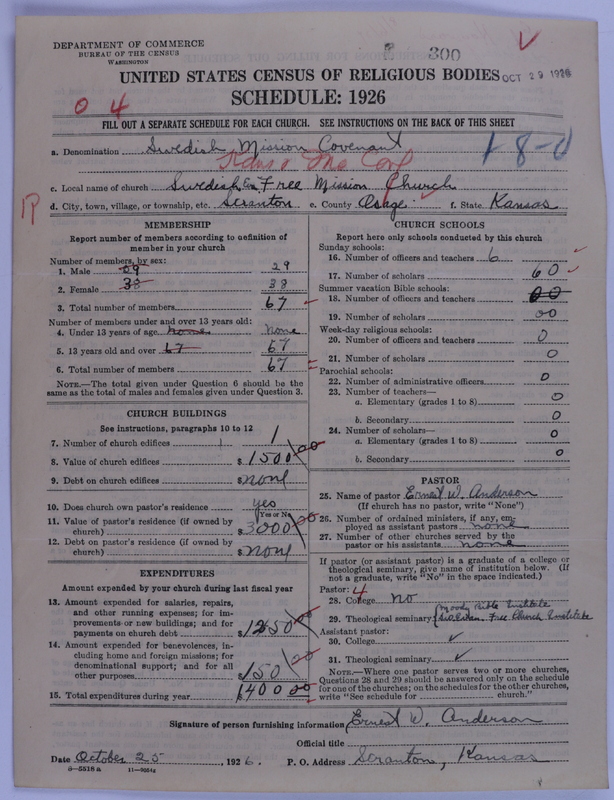 DEPARTMENT OF COMMERCE
BUREAU OF THE CENSUS
WASHINGTON
300
UNITED STATES CENSUS OF RELIGIOUS BODIES
OCT 29 1926
SCHEDULE: 1926
0 4
FILL OUT A SEPARATE SCHEDULE FOR EACH CHURCH. SEE INSTRUCTIONS ON THE BACK OF THIS SHEET
a. Denomination Swedish Mission Covenant
18-0
c. Local name of church Swedish Ev. Free Mission Church
d. City, town, village, or township, etc. Scranton e. County Osage f. State Kansas
MEMBERSHIP
Report number of members according to definition of
member in your church
Number of members, by sex:
1. Male 29 29
2. Female 38 38
3. Total number of members 67
Number of members under and over 13 years old:
4. Under 13 years of age none None
5. 13 years old and over 67 67
6. Total number of members 67
NOTE.—The total given under Question 6 should be
the same as the total of males and females given under Question 3.
CHURCH BUILDINGS
See instructions, paragraphs 10 to 12
7. Number of church edifices 1 1
8. Value of church edifices $1500 00
9. Debt on church edifices $none
10. Does church own pastor's residence yes
(Yes or No)
11. Value of pastor's residence (if owned by
church) $3000 00
12. Debt on pastor's residence (if owned by
church) $none
EXPENDITURES
Amount expended by your church during last fiscal year
13. Amount expended for salaries, repairs,
and other running expenses; for im-
provements or new buildings; and for
payments on church debt $1250 00
14. Amount expended for benevolences, in-
cluding home and foreign missions; for
denominational support; and for all
other purposes $150 00
15. Total expenditures during year $1400 00
CHURCH SCHOOLS
Report here only schools conducted by this church
Sunday schools:
16. Number of officers and teachers 6
17. Number of scholars 60
Summer vacation Bible schools:
18. Number of officers and teachers 00
19. Number of scholars 00
Week-day religious schools:
20. Number of officers and teachers 0
21. Number of scholars 0
Parochial schools:
22. Number of administrative officers 0
23. Number of teachers—
a. Elementary (grades 1 to 8) 0
b. Secondary 0
24. Number of scholars—
a. Elementary (grades 1 to 8) 0
b. Secondary 0
PASTOR
25. Name of pastor Ernest W. Anderson
(If church has no pastor, write "None")
26. Number of ordained ministers, if any, em-
ployed as assistant pastors none
27. Number of other churches served by the
pastor or his assistants none
If pastor (or assistant pastor) is a graduate of a college or
theological seminary, give name of institution below. (If
not a graduate, write "No" in the space indicated.)
Pastor: 4
28. College No
29. Theological seminary Moody Bible Institute
Free Church Institute
Assistant pastor:
30. College
31. Theological seminary
NOTE.—Where one pastor serves two or more churches,
Questions 28 and 29 should be answered only on the schedule
for one of the churches; on the schedules for the other churches,
write "See schedule for church."
Signature of person furnishing information Ernest W. Anderson
Official title
Date October 25, 1926. P. O. Address Scranton, Kansas
8-5518 a 11-9054a